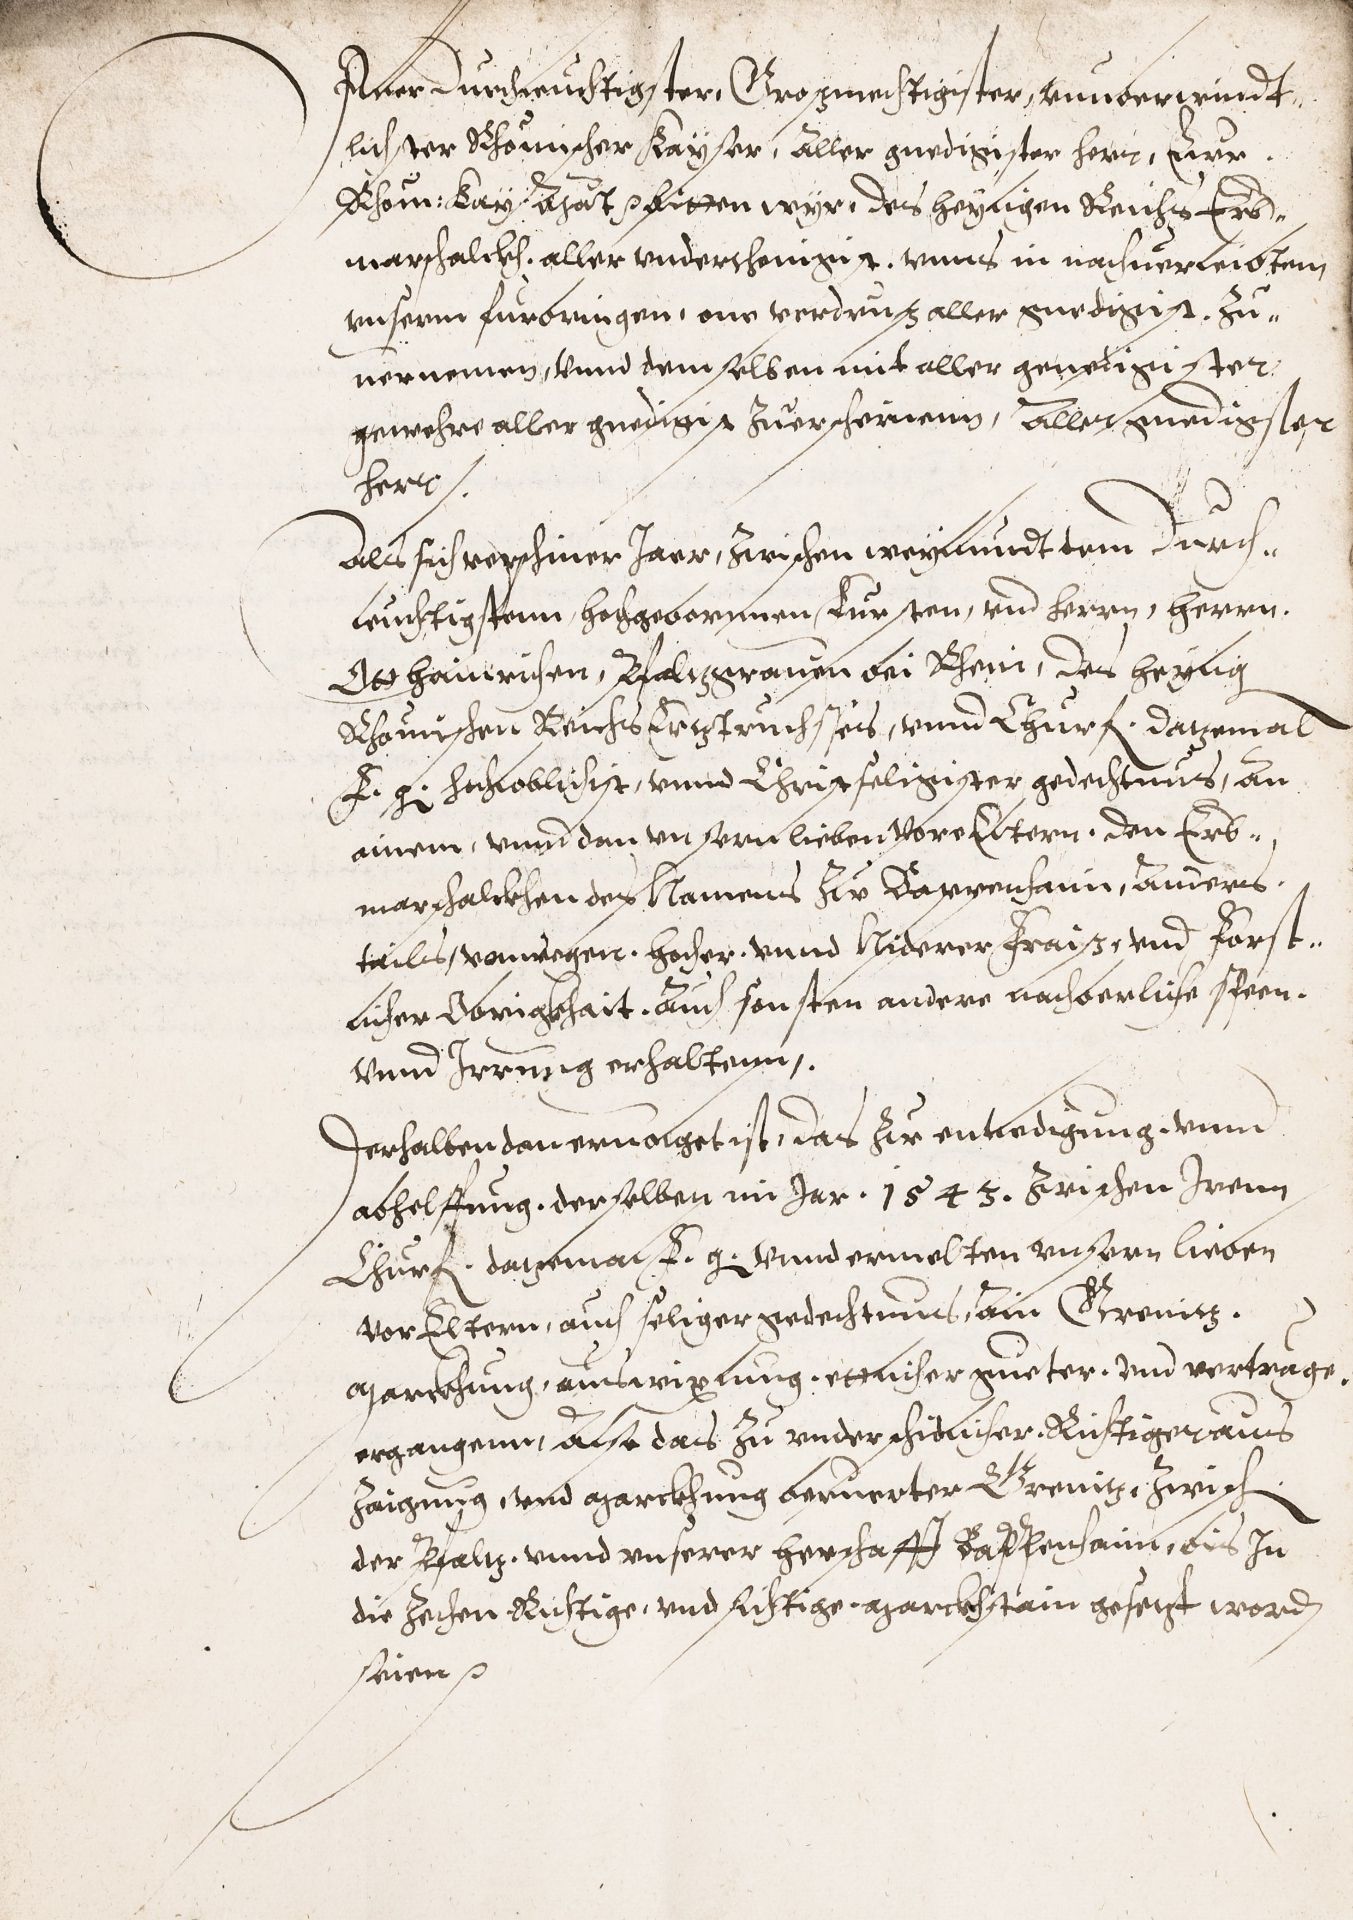 Aller Durchleuchtigster, Grosmechtigister, vnuberwindt„
lichster Rhömischer Kayser, Aller gnedigister herr, Eur.
Rhöm: Kay: Mät bitten wyr, des heyligen Reichs Erb„
marschalckh. aller vnderthenigist. vnns in nachuerleibtem
vnserm furbringen, one verdrus aller gnedigist. Zu„
uernemen, vnnd demselben mit aller genedigister
gewehre aller gnedigist Zuerscheinenn, Aller gnedigster
herr /.
Als sich verschiner Jaer, Zwischen weylundt dem Durch„
leuchtigstenn hochgebornnen Fursten, vnd herrn, herrn.
Ott hainrichen, Pfaltzgrauen bei Rhein, des heylig
Rhömischen Reichs Ertztruchsses, vnnd Churf. datzemal
F. g. hochloblichist, vnnd Christseligister gedechtnus, An
ainem, vnnd dan vnsern lieben Vor Eltern. den Erb„
marschalckhen des Namens Zu Bappenhaim, Anders.
tails, vonwegen. hocher. vnnd Niderer Fraiß, vnd Forst„
licher Obrigkhait. Auch sonsten andere nachberliche speen.
vnnd Irrung erhaltenn /.
Derhalben dan eruolget ist, das Zu entledigung. vnnd
abhelffung. derselben im Jar. 1543. Zwischen Irenn
Churf. datzemal F. g. vnnd ermelten vnsern lieben
vor Eltern, auch seliger gedechtnus, Ain Grenitz.
Marckhung, auswixlung. ettlicher gueter. vnd vertrage.
ergangenn, Also das Zu vnderschidlicher. Richtiger aus
Zaigung, vnd Marckhung beruerter Grenitz, Zwisch
der Pfaltz. vnnd vnserer herschafft Bappenhaim, bis In
die Zechen Richtige, vnd sichtige. Marckhstain gesetzt word
seien